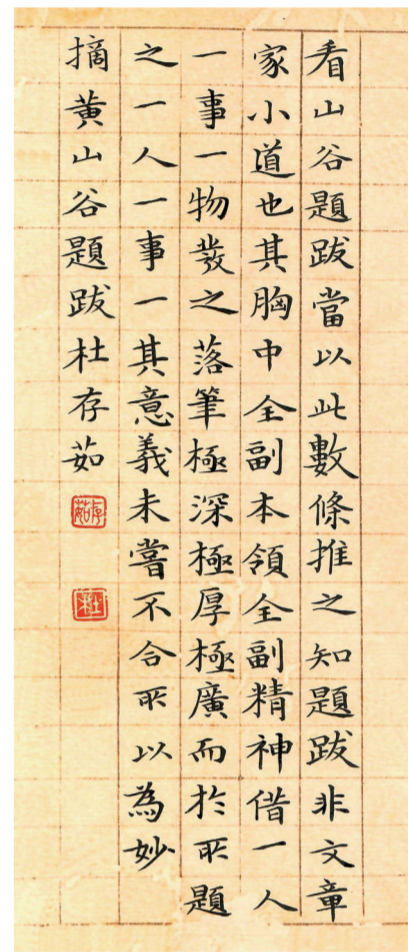 看山谷題跋當以此數條推之知題跋非文章
家小道也其胸中全副本領全副精神借一人
一事一物發之落筆極深極厚極廣而於所題
之一人一事一其意義未嘗不合所以為妙
摘黃山谷題跋杜存茹
存茹
杜